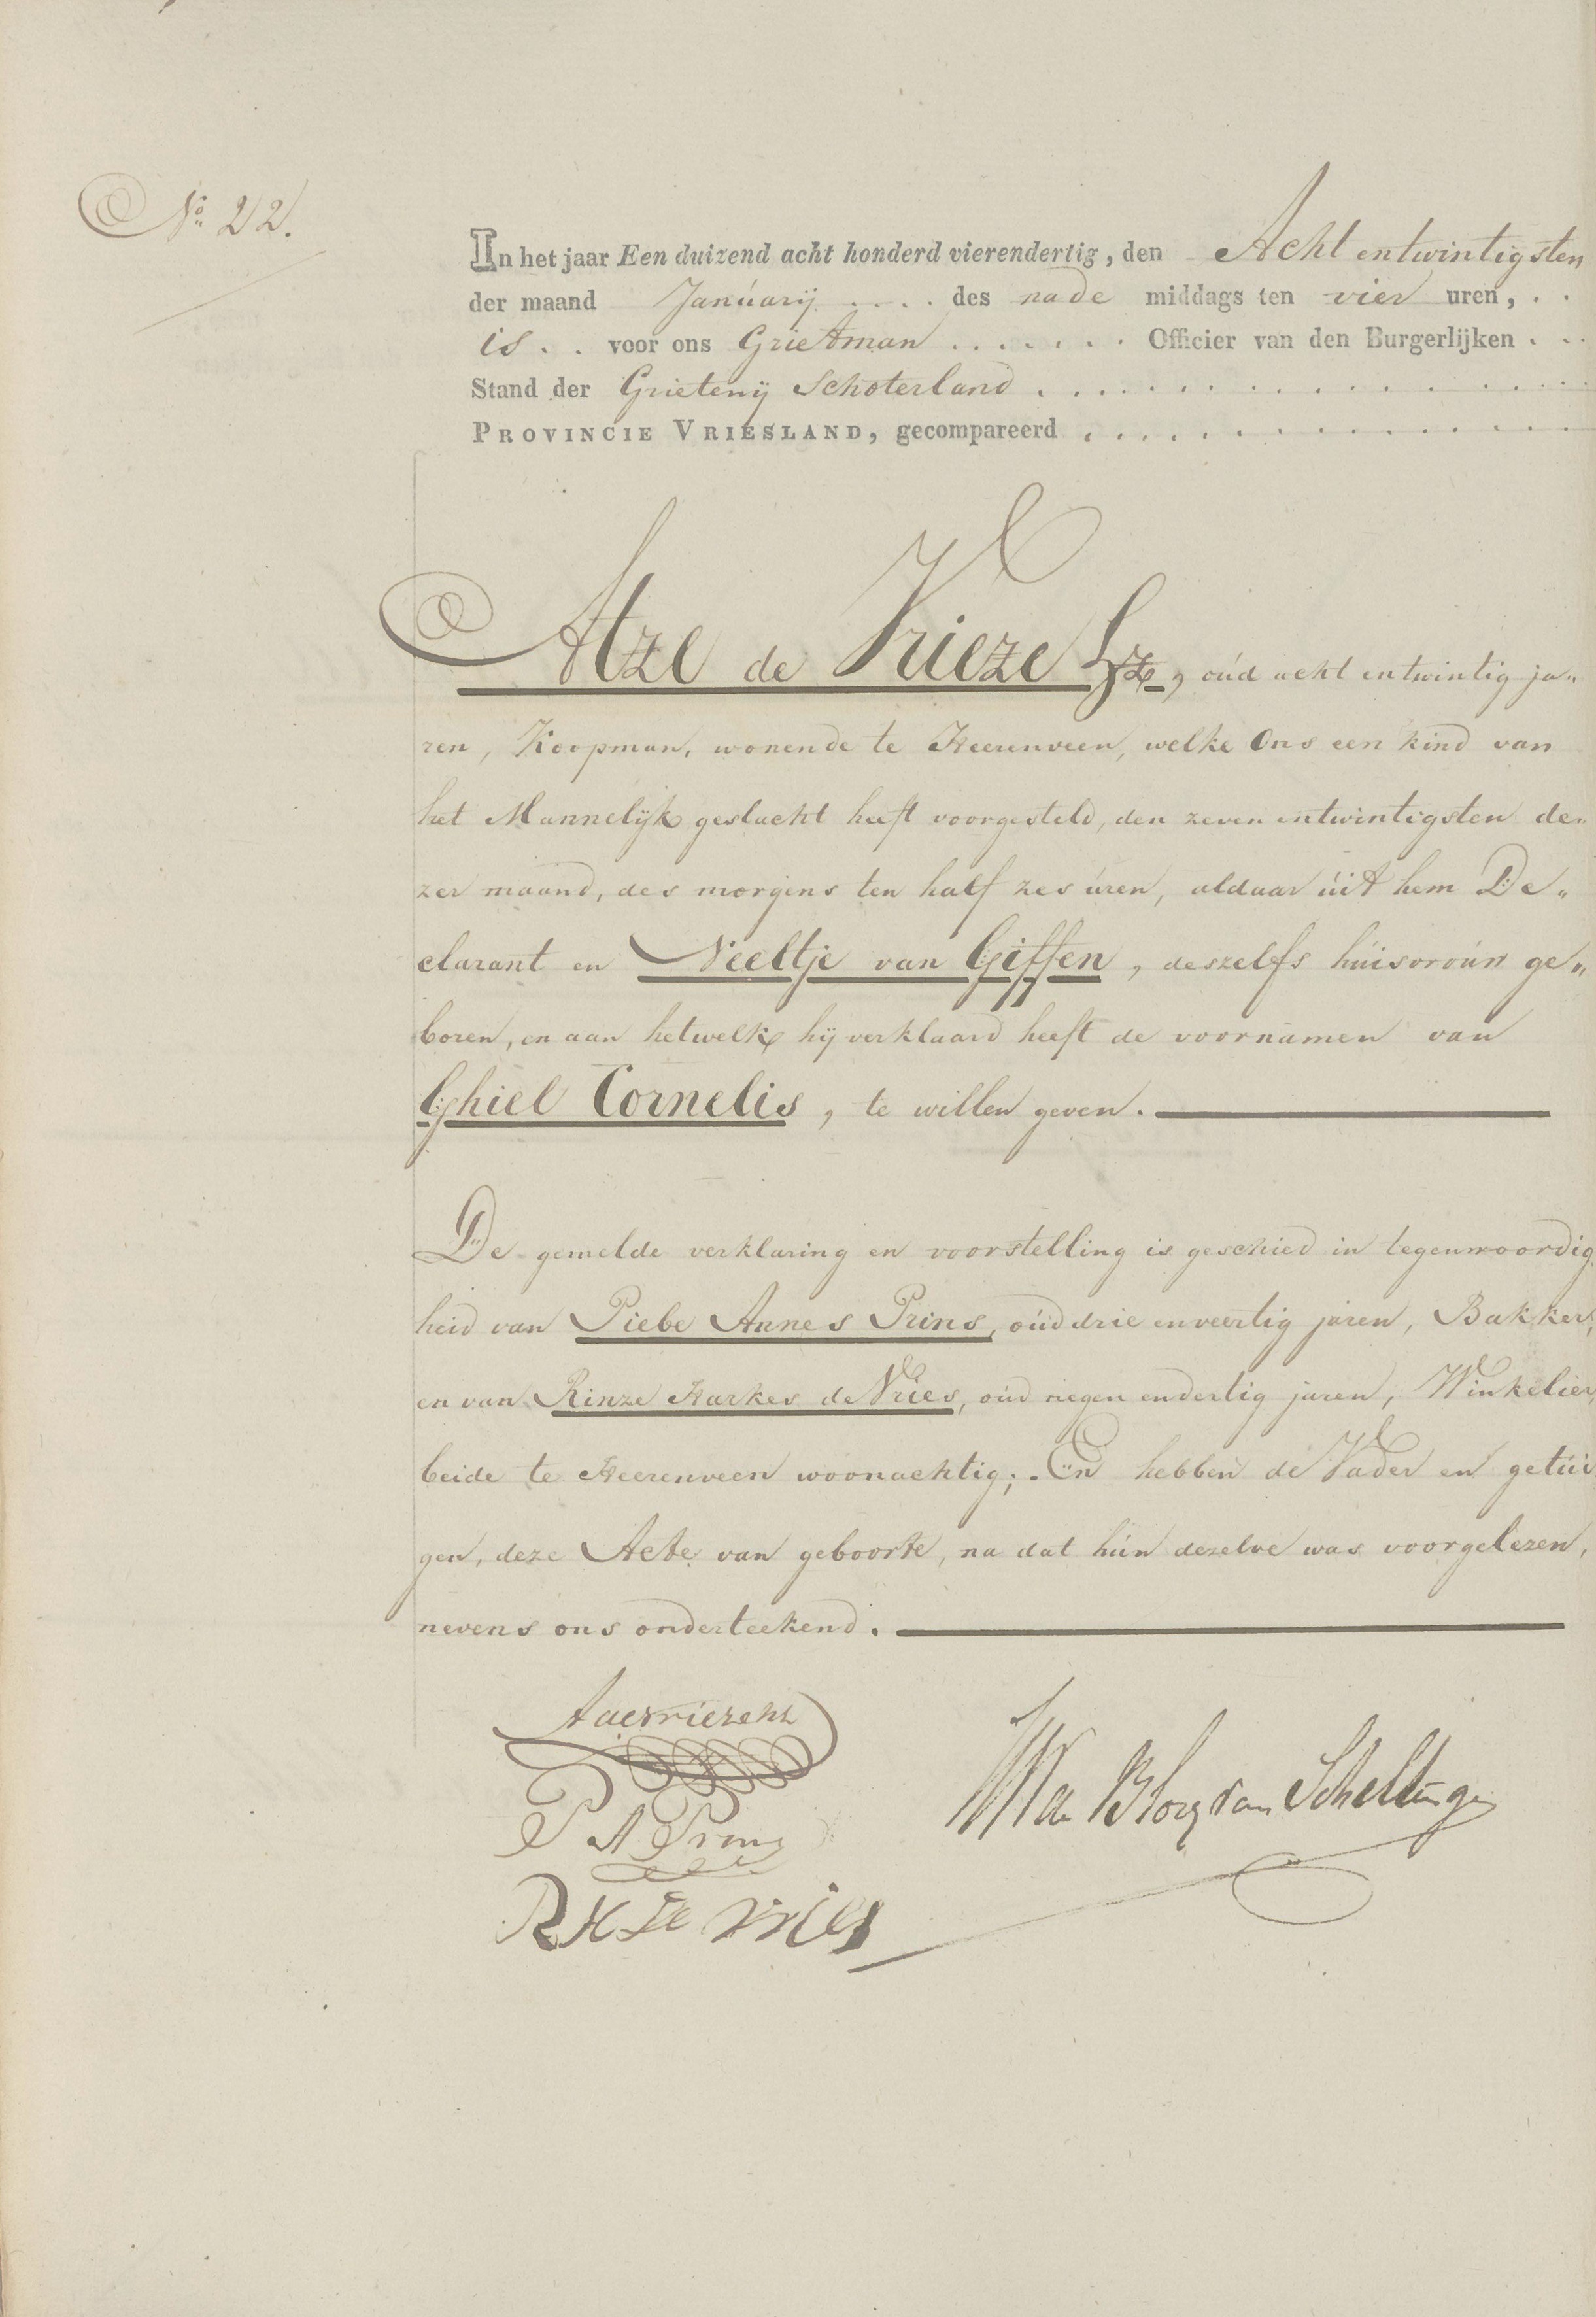 No 22.
In het jaar Een duizend acht honderd vierendertig, den Acht entwintigsten
der maand Januarij .... des nade middags ten vier uren, . .
is . . voor ons Grietman ....... Officier van den Burgerlijken . . .
Stand der Grietenij Schoterland ................
PROVINCIE VRIESLAND, gecompareerd ..............
Atze de Vrieze Hz, oud acht entwintig ja„
ren, Koopman, wonende te Heerenveen, welke Ons een kind van
het Mannelijk geslacht heeft voorgesteld, den zeven entwintigsten de„
zer maand, des morgens ten half zes uren, aldaar uit hem De„
clarant en Neeltje van Giffen, deszelfs huisvrouw ge„
boren, en aan hetwelk hij verklaard heeft de voornamen van
Ghiel Cornelis, te willen geven.
De gemelde verklaring en voorstelling is geschied in tegenwoordig
heid van Piebe Annes Prins, oud drie enveertig jaren, Bakker,
en van Rinze Harkes de Vries, oud negen endertig jaren, Winkelier,
beide te Heerenveen woonachtig; En hebben de Vader en getui
gen, deze Acte van geboorte, na dat hun dezelve was voorgelezen,
nevens ons onderteekend.
AdeVriezeHz
P A Prins
R H de Vries
de Blocq van Scheltinga